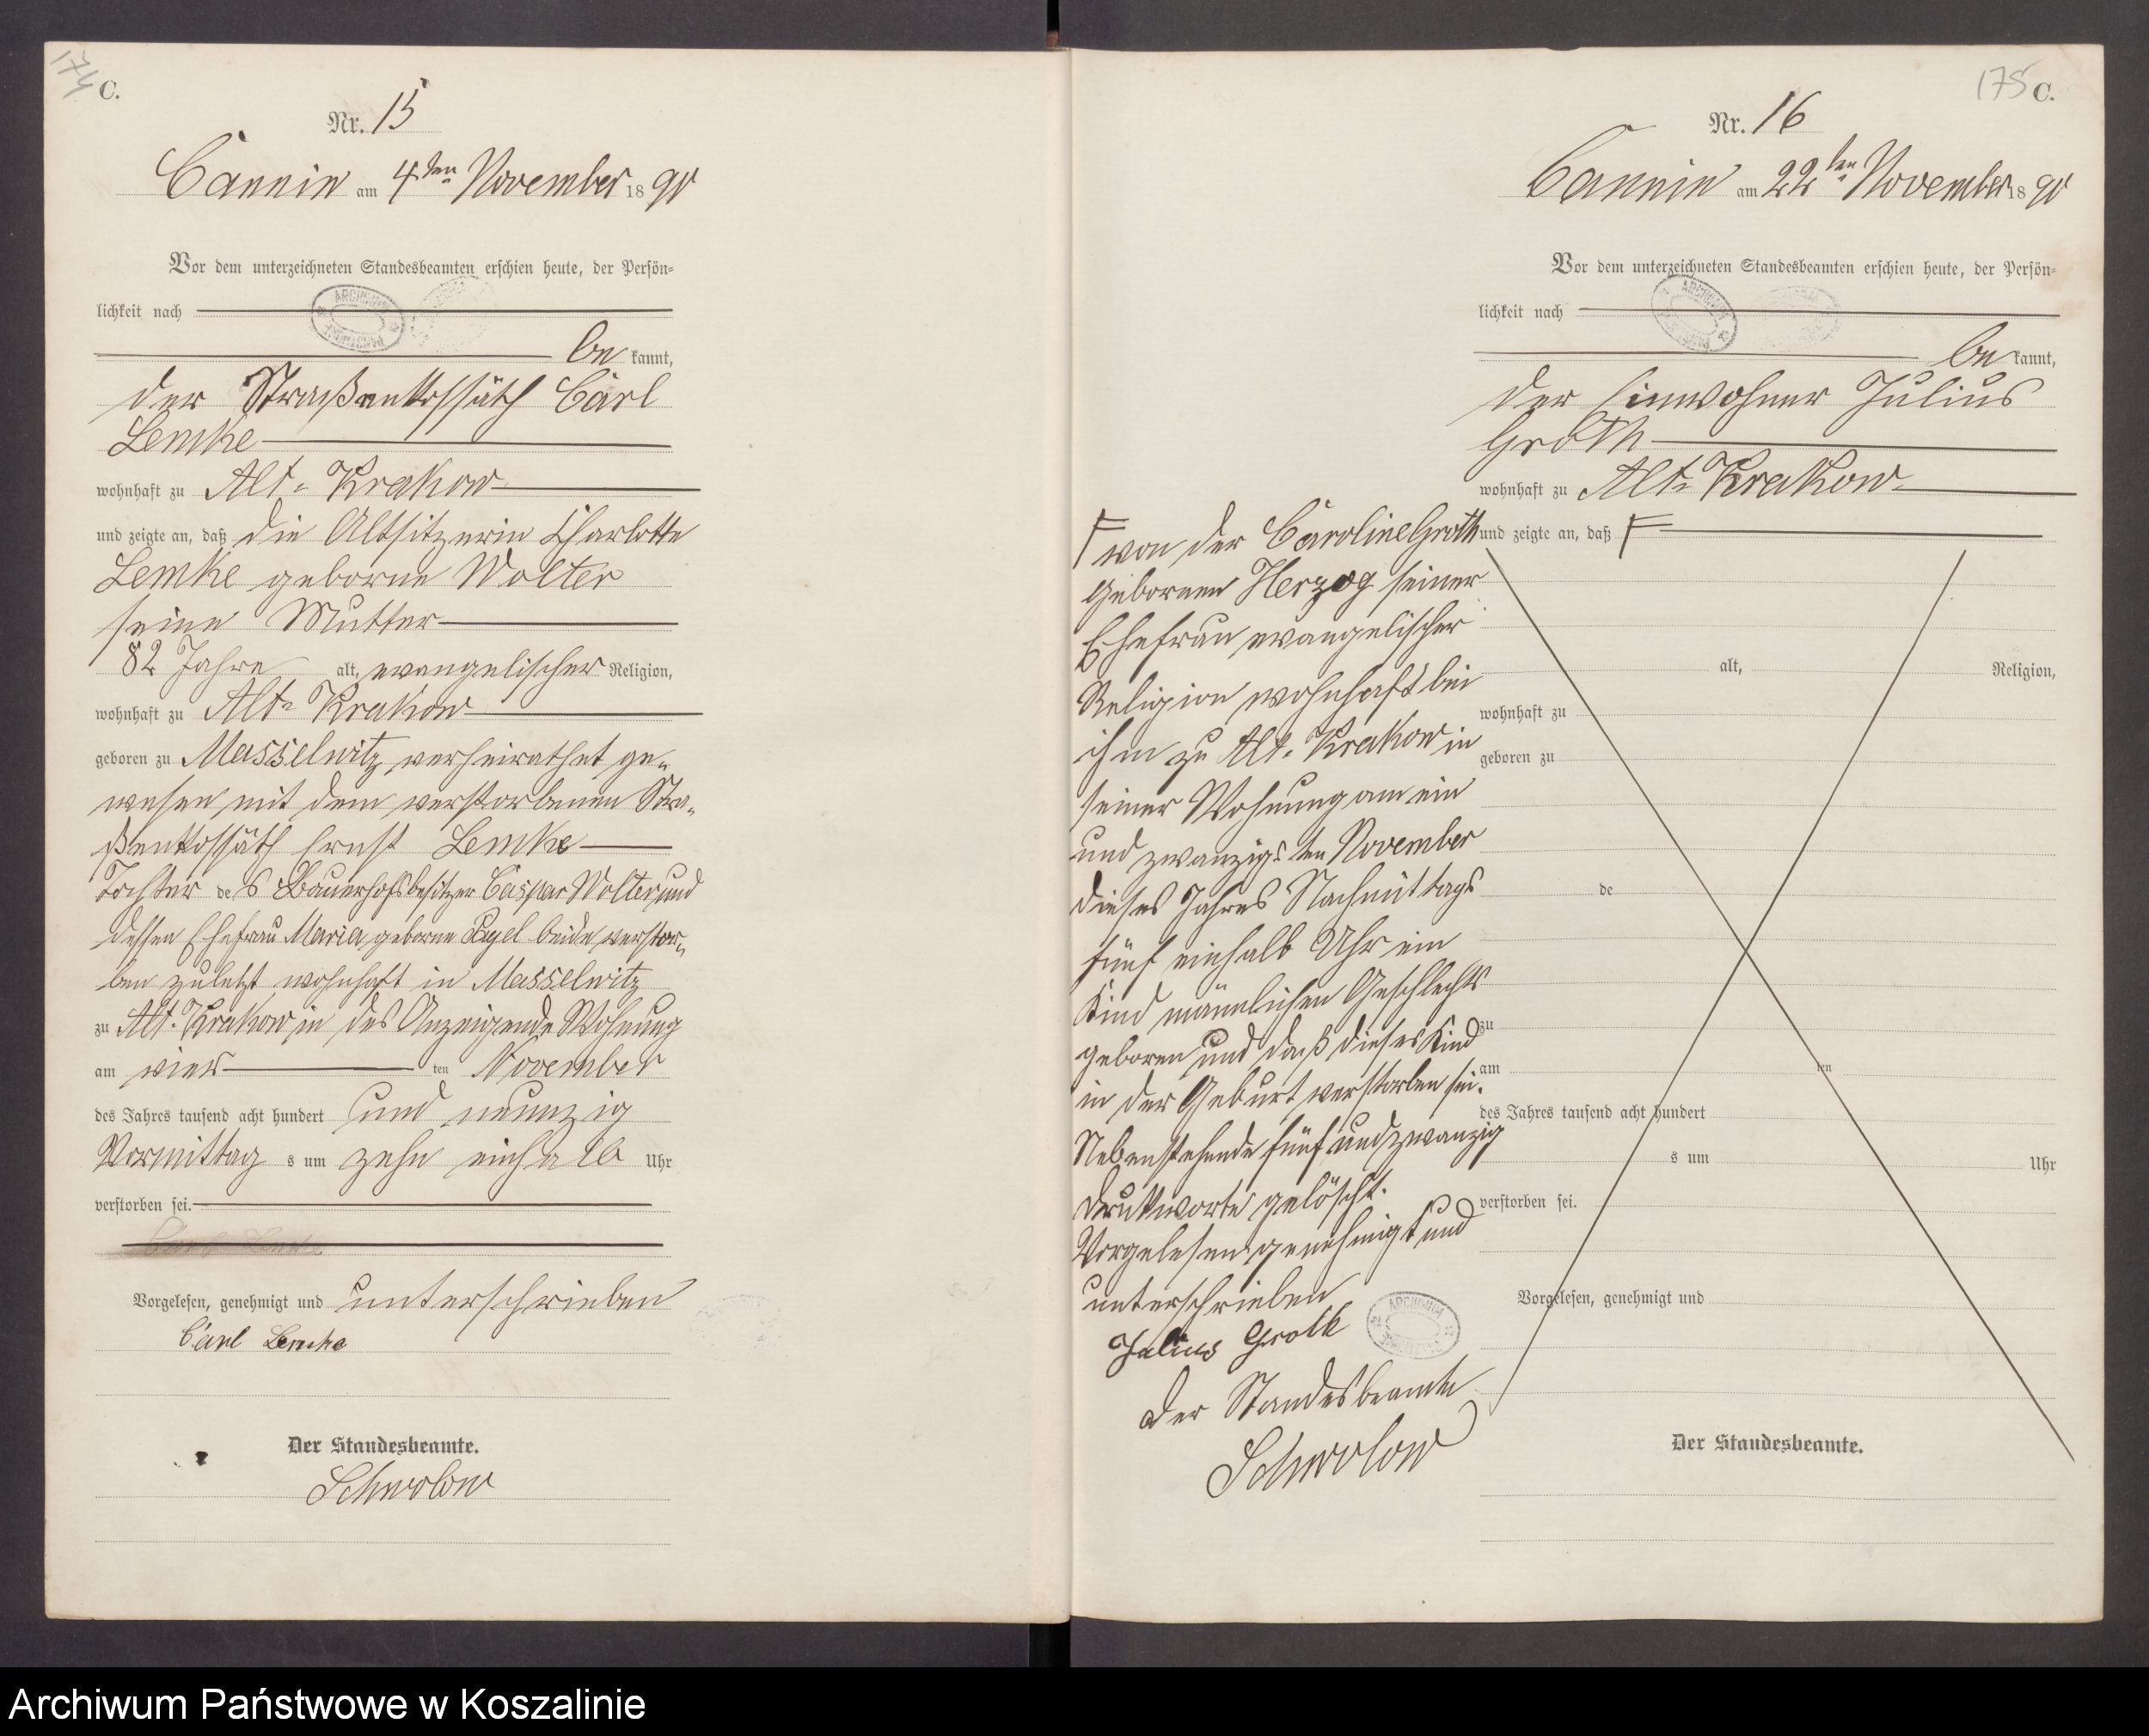 174
C.
Nr. 15
Cannin am 4ten November 1890
Vor dem unterzeichneten Standesbeamten erschien heute, der Persön-
lichkeit nach
bekannt,
der Straßenkossäth Carl
Lemke
wohnhaft zu Alt-Krakow
und zeigte an, daß die Altsitzerin Charlotte
Lemke geborne Wolter
seine Mutter
82 Jahre alt, evangelischer Religion,
wohnhaft zu Alt-Krakow
geboren zu Masselwitz, verheirathet ge-
wesen mit dem verstorbenen Stra-
ßenkossäth Ernst Lemke
Tochter des Bauerhofsbesitzer Caspar Wolter und
dessen Ehefrau Maria, geborne beide verstor-
ben zuletzt wohnhaft in Masselwitz
zu Alt-Krakow in des Anzeigende Wohnung
am vier ten November
des Jahres tausend acht hundert und neunzig
Vormittag s um zehn einhalb Uhr
verstorben sei.
Vorgelesen, genehmigt und unterschrieben
Carl Lemke
Der Standesbeamte.
Schwolow
175
C.
Nr. 16
Cannin am 22ten November 1890
Vor dem unterzeichneten Standesbeamten erschien heute, der Persön-
lichkeit nach
bekannt,
der Einwohner Julius
Groth
wohnhaft zu Alt-Krakow
und zeigte an, daß
alt, Religion,
wohnhaft zu
geboren zu
de
zu
am ten
des Jahres tausend acht hundert
s um Uhr
verstorben sei.
Vorgelesen, genehmigt und
Der Standesbeamte.
von der Caroline Groth
gebornen Herzog seiner
Ehefrau evangelischer
Religion wohnhaft bei
ihm zu Alt-Krakow in
seiner Wohnung am ein
und zwanzigsten November
dieses Jahres Nachmittags
fünf einhalb Uhr ein
Kind männlichen Geschlechts
geboren und daß dieses Kind
in der Geburt verstorben sei.
Nebenstehende fünf und zwanzig
Druckworte gelöscht.
Vorgelesen genehmigt und
unterschrieben
Julius Groth
Der Standesbeamte
Schwolow
Archiwum Państwowe w Koszalinie